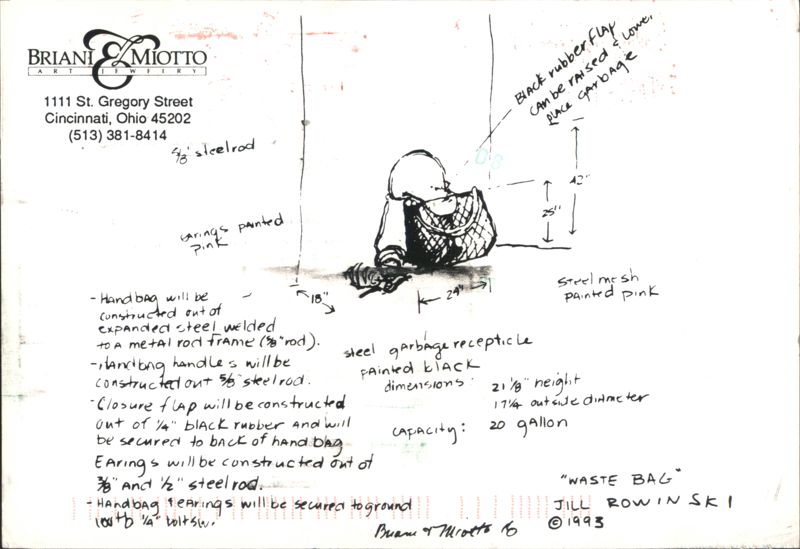 BRIANI & MIOTTO
ART JEWELRY
1111 St. Gregory Street
Cincinnati, Ohio 45202
(513) 381-8414
BLACK rubber FLAP
CAN be RAISED & lower
place GARBAGE
5/8" steel rod
EARINGS PAINTED
PINK
42"
25"
18"
24"
Steel mesh
PAINTED PINK
- Handbag will be
constructed out of
expanded steel welded
to a metal rod frame (5/8" rod).
- Handbag handles will be
constructed out 5/8" steel rod.
- Closure flap will be constructed
out of 1/4" black rubber and will
be secured to back of handbag
Earings will be constructed out of
3/8" and 1/2" steel rod.
- Handbag & earings will be secured to ground
with 1/4" bolts
steel garbage recepticle
painted black
dimensions: 21 1/8" height
17 1/4 outside diameter
CAPACITY: 20 gallon
"WASTE BAG"
JILL ROWINSKI
©1993
Briani & Miotto